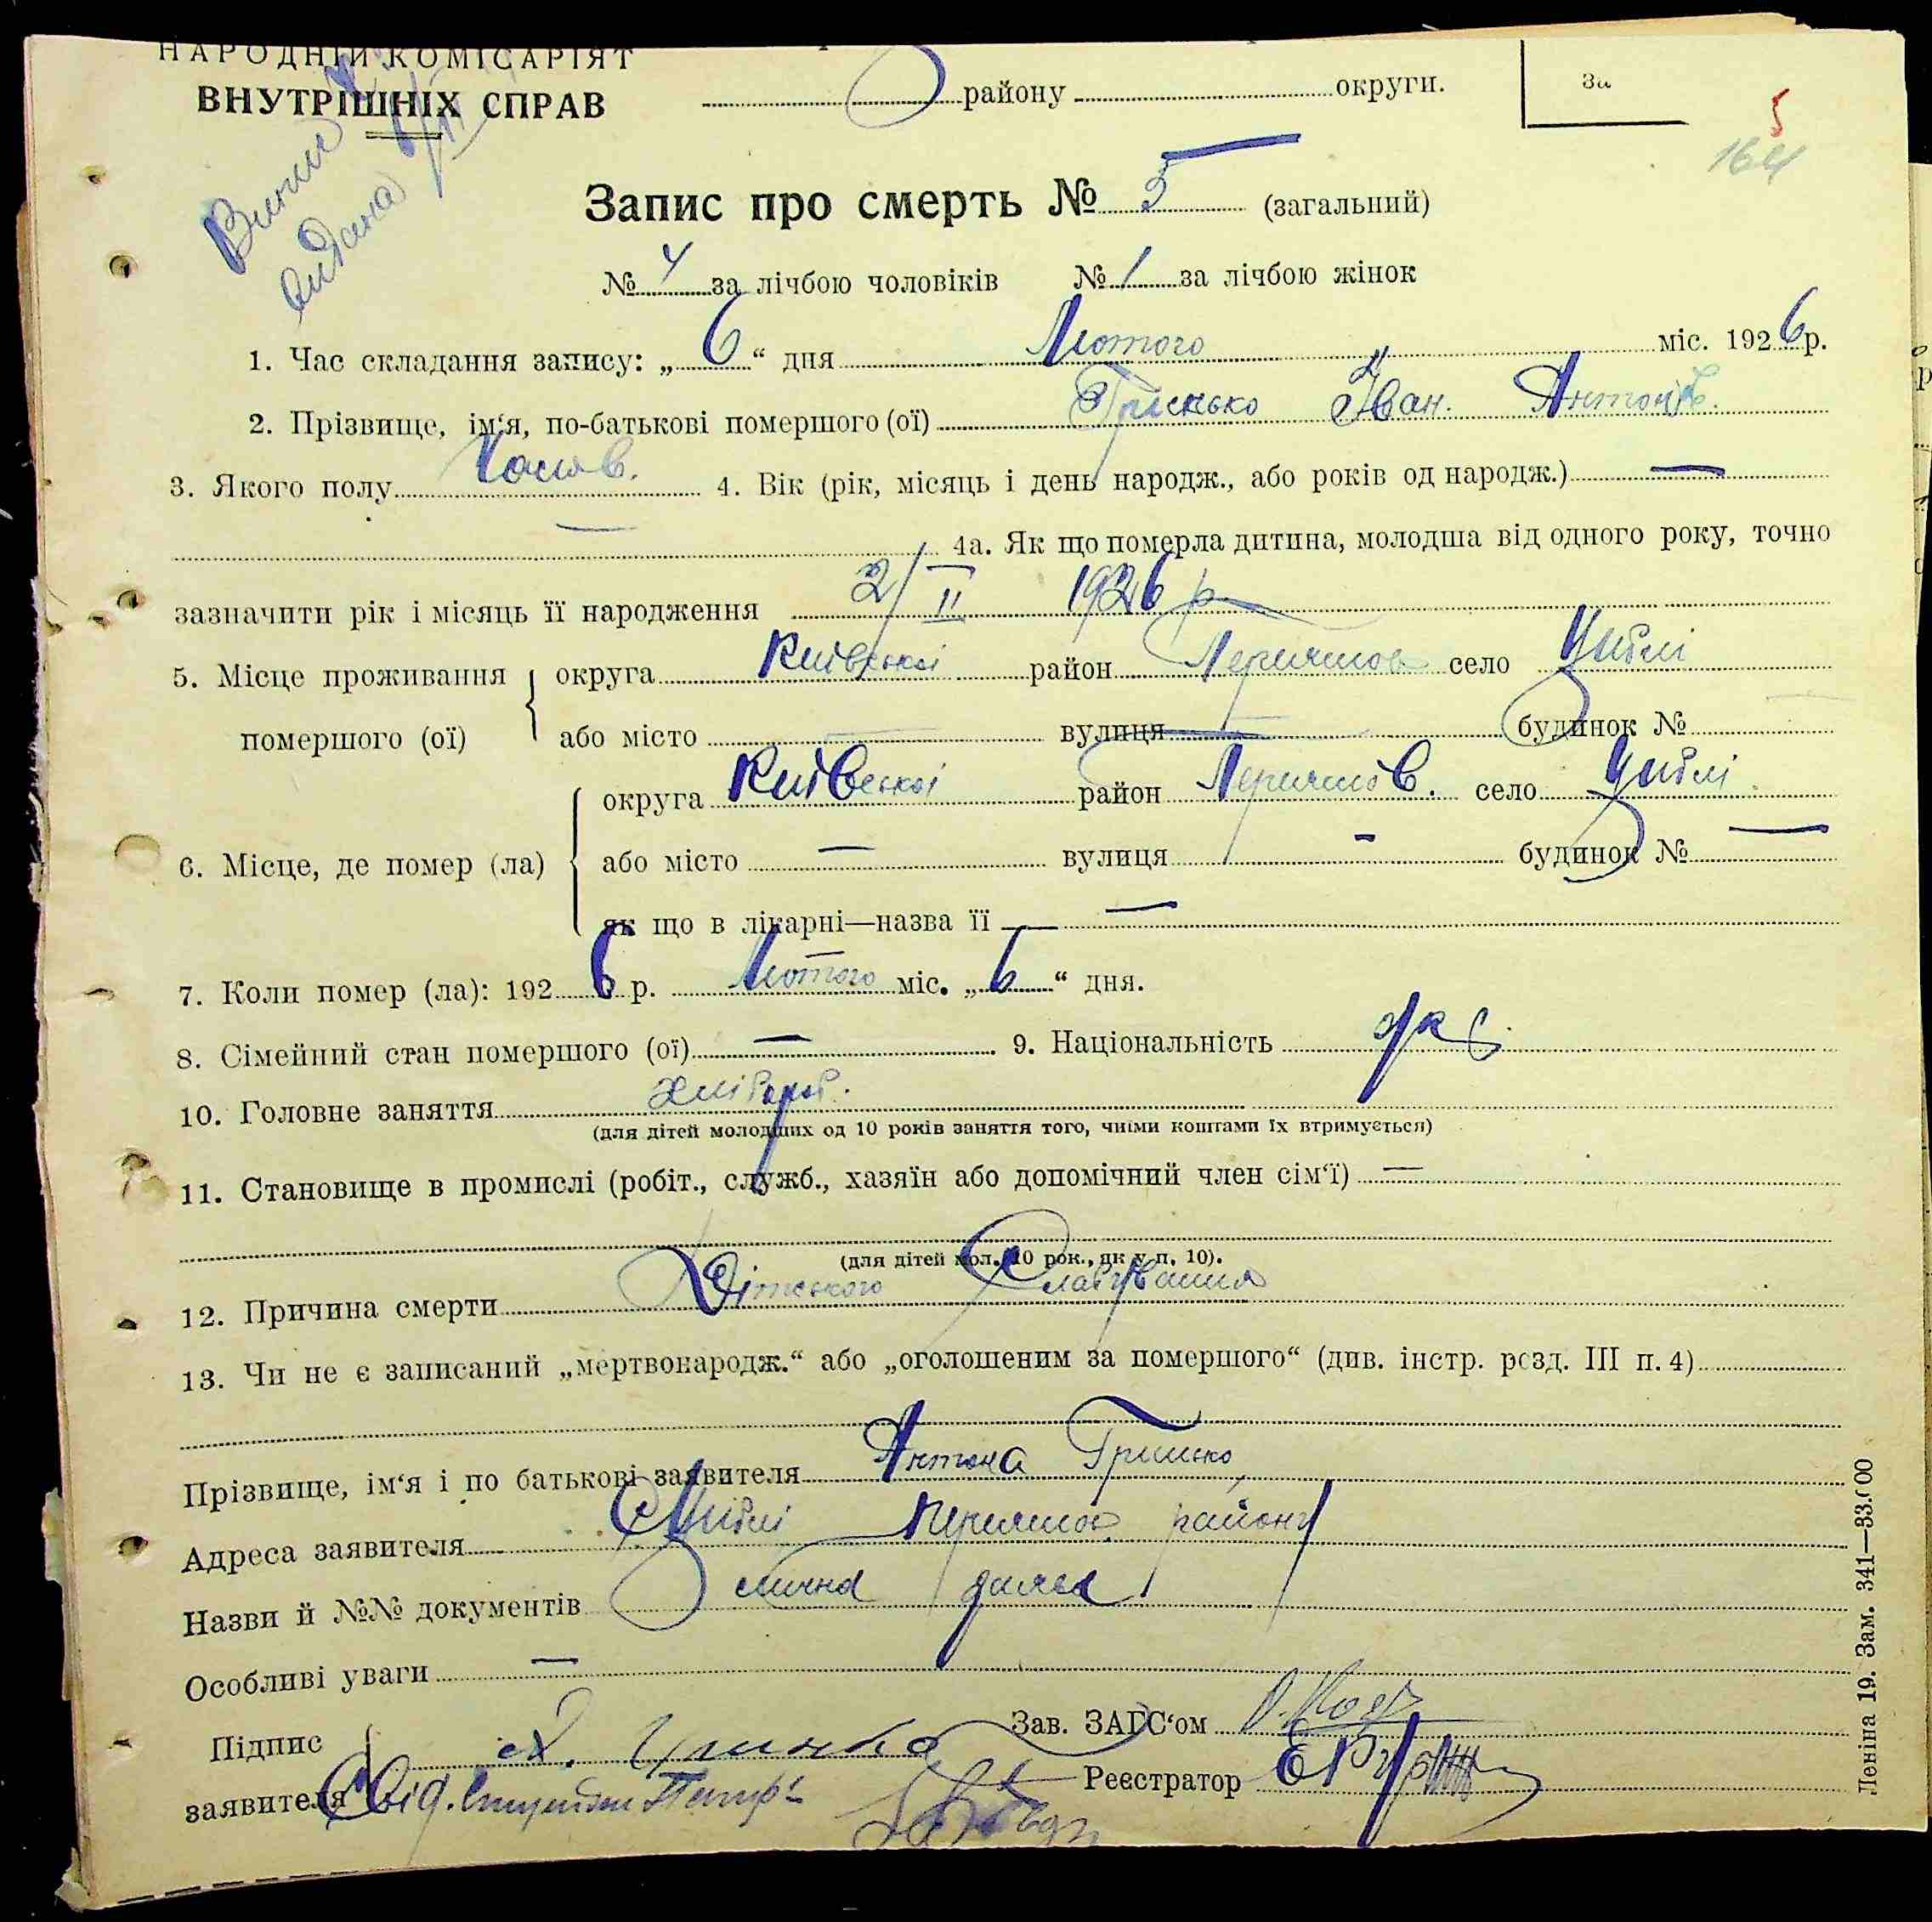 НАРОДНІЙ КОМІСАРІЯТ
ВНУТРІШНІХ СПРАВ
району округи.
За
5
164
Видана
Запис про смерть № 5 (загальний)
№ 4 за лічбою чоловіків № 1 за лічбою жінок
1. Час складання запису: „6“ дня Лютого міс. 1926 р.
2. Прізвище, ім‘я, по-батькові помершого (ої) Грисько Іван Антонів.
3. Якого полу Чолов. 4. Вік (рік, місяць і день народж., або років од народж.) —
— 4а. Як що померла дитина, молодша від одного року, точно
зазначити рік і місяць її народження 2/II 1926 р
5. Місце проживання округа Київської район Переяслов село Циблі
помершого (ої) або місто — вулиця — будинок № —
округа Київської район Переяслов. село Циблі.
6. Місце, де помер (ла) або місто — вулиця — будинок № —
як що в лікарні—назва її —
7. Коли помер (ла): 1926 р. Лютого міс. „6“ дня.
8. Сімейний стан помершого (ої) — 9. Національність укр.
10. Головне заняття хлібороб.
(для дітей молодших од 10 років заняття того, чиїми коштами їх втримується)
11. Становище в промислі (робіт., служб., хазяїн або допомічний член сім‘ї) —
(для дітей мол. 10 рок., як у п. 10).
12. Причина смерти Дітського Слабування
13. Чи не є записаний „мертвонародж.“ або „оголошеним за помершого“ (див. інстр. розд. III п. 4)
Прізвище, ім‘я і по батькові заявителя Антона Грисько
Адреса заявителя с Циблі Переяслов району
Назви й №№ документів
Особливі уваги —
Підпис Зав. ЗАГС‘ом
заявителя Свід. Реєстратор
Леніна 19. Зам. 341—33.000